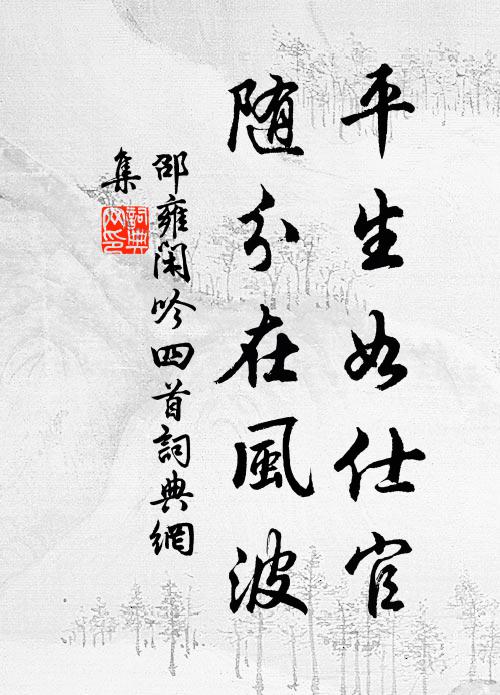 平生如仕官
随分在風波
邵雍閑吟四首詞典網
集
詞典网印